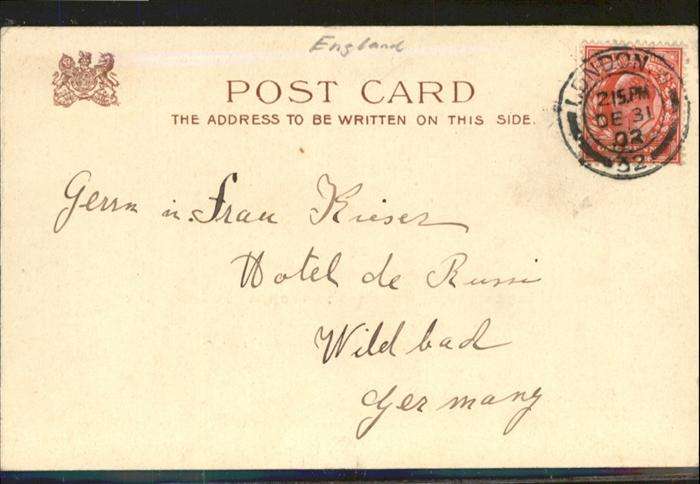 England
POST CARD
THE ADDRESS TO BE WRITTEN ON THIS SIDE.
LONDON
2.15.PM
DE 31
03
32
Herrn u. Frau Kieser
Hotel de Russi
Wildbad
Germany